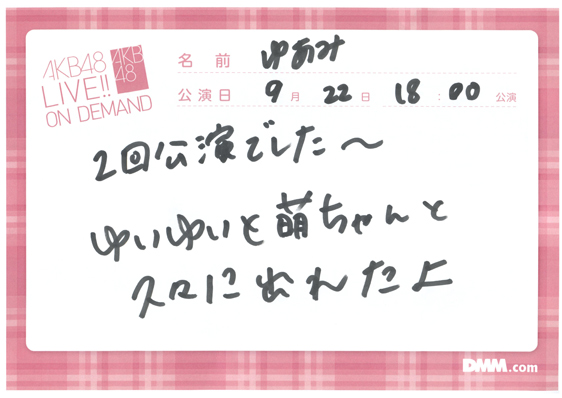 AKB48
LIVE!!
ON DEMAND
AKB
48
名前 ゆあみ
公演日 9月22日 18:00公演
2回公演でした〜
ゆいゆいと萌ちゃんと
スロに出れたよ
DMM.com